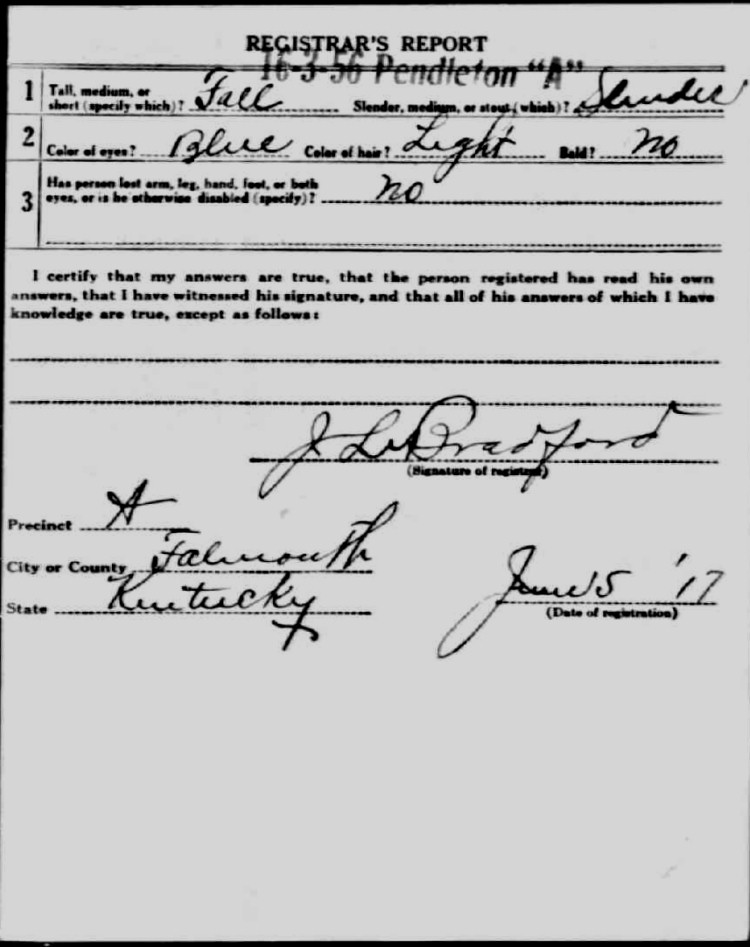 REGISTRAR'S REPORT
16-3-56 Pendleton "A"
1 Tall, medium, or short (specify which)? Tall Slender, medium, or stout (which)? Slender
2 Color of eyes? Blue Color of hair? Light Bald? No
3 Has person lost arm, leg, hand, foot, or both
eyes, or is he otherwise disabled (specify)? no
I certify that my answers are true, that the person registered has read his own
answers, that I have witnessed his signature, and that all of his answers of which I have
knowledge are true, except as follows:
J L Bradford
(Signature of registrar)
Precinct A
City or County Falmouth
State Kentucky
June 5 '17
(Date of registration)